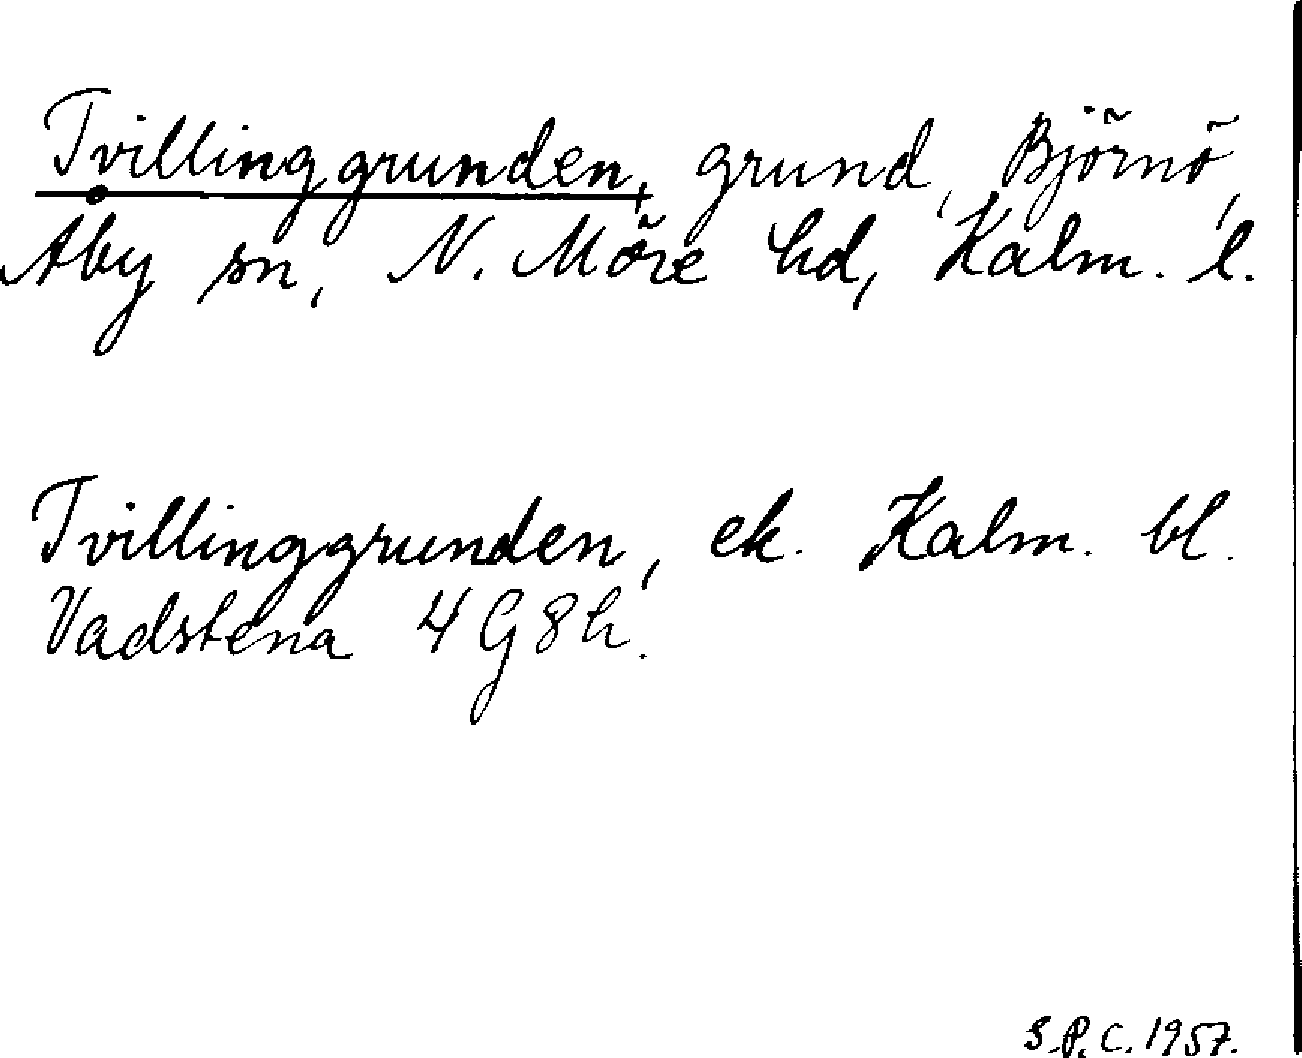 Tvillinggrunden, grund, Björnö,
Åby sn, N. Möre hd, Kalm. l.
Tvillinggrunden, ek. Kalm. bl.
Vadstena 4G8h.
S.P.C. 1957.